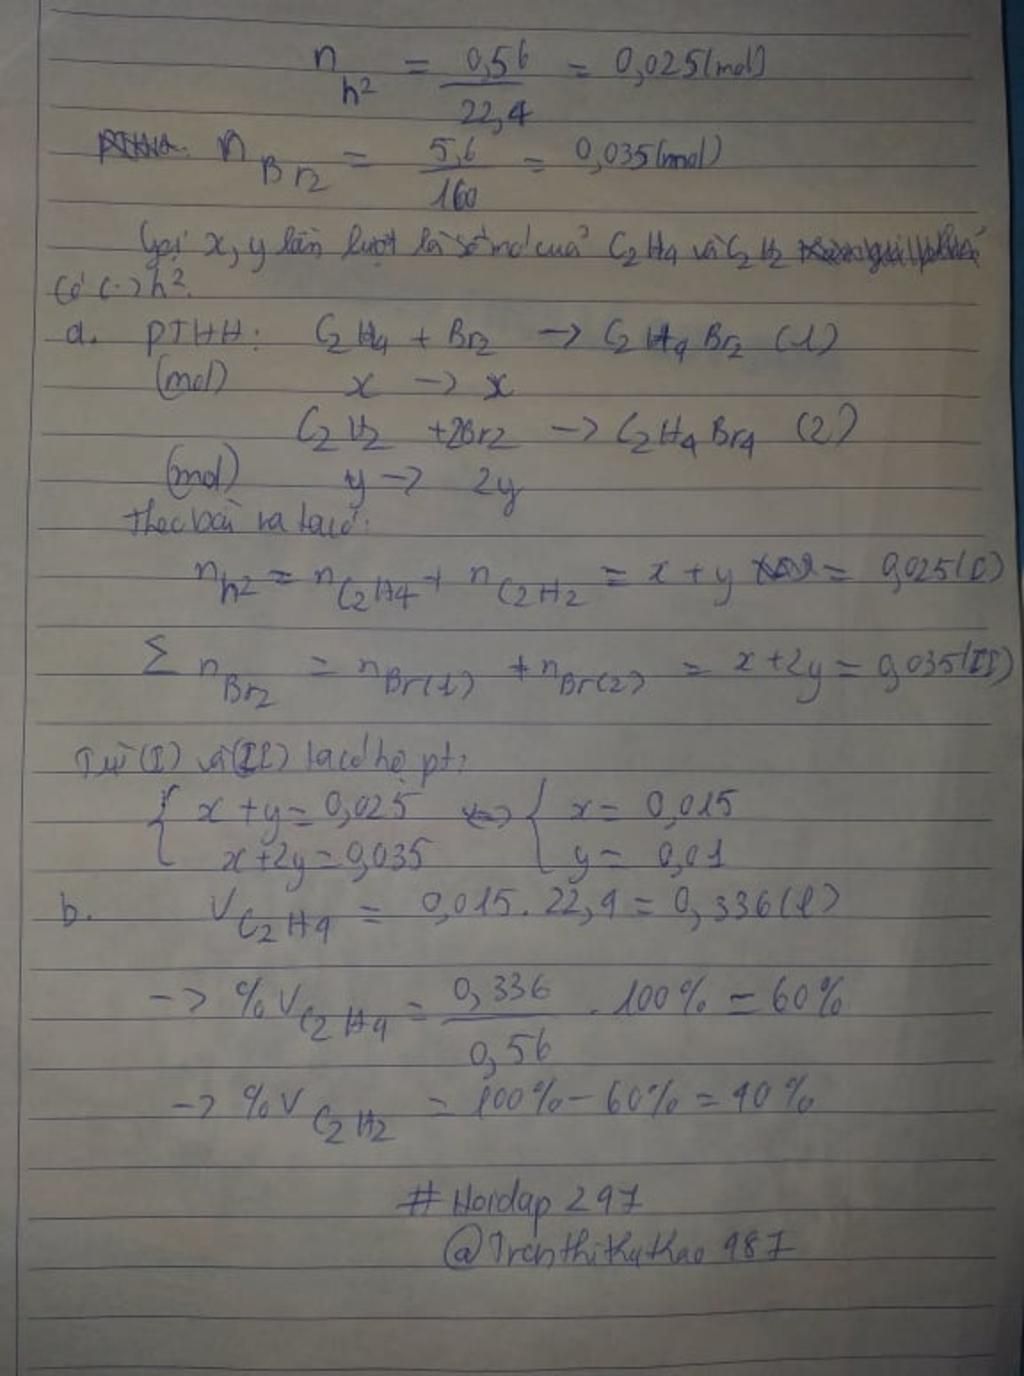 n h² = 0,56 / 22,4 = 0,025(mol)
n Br2 = 5,6 / 160 = 0,035(mol)
Gọi x, y lần lượt là số mol của C2H4 và C2H2
có (-) h².
a. PTHH: C2H4 + Br2 -> C2H4Br2 (1)
(mol) x -> x
C2H2 + 2Br2 -> C2H4Br4 (2)
(mol) y -> 2y
Theo bài ra ta có:
n h² = n C2H4 + n C2H2 = x + y = 0,025(I)
Σ n Br2 = n Br(1) + n Br(2) = x + 2y = 0,035(II)
Từ (I) và (II) ta có hệ pt:
{ x + y = 0,025 <=> { x = 0,015
x + 2y = 0,035 y = 0,01
b. V C2H4 = 0,015 . 22,4 = 0,336(l)
-> %V C2H4 = 0,336 / 0,56 . 100% = 60%
-> %V C2H2 = 100% - 60% = 40%
# Hoidap 297
@Tranthithuthao 987